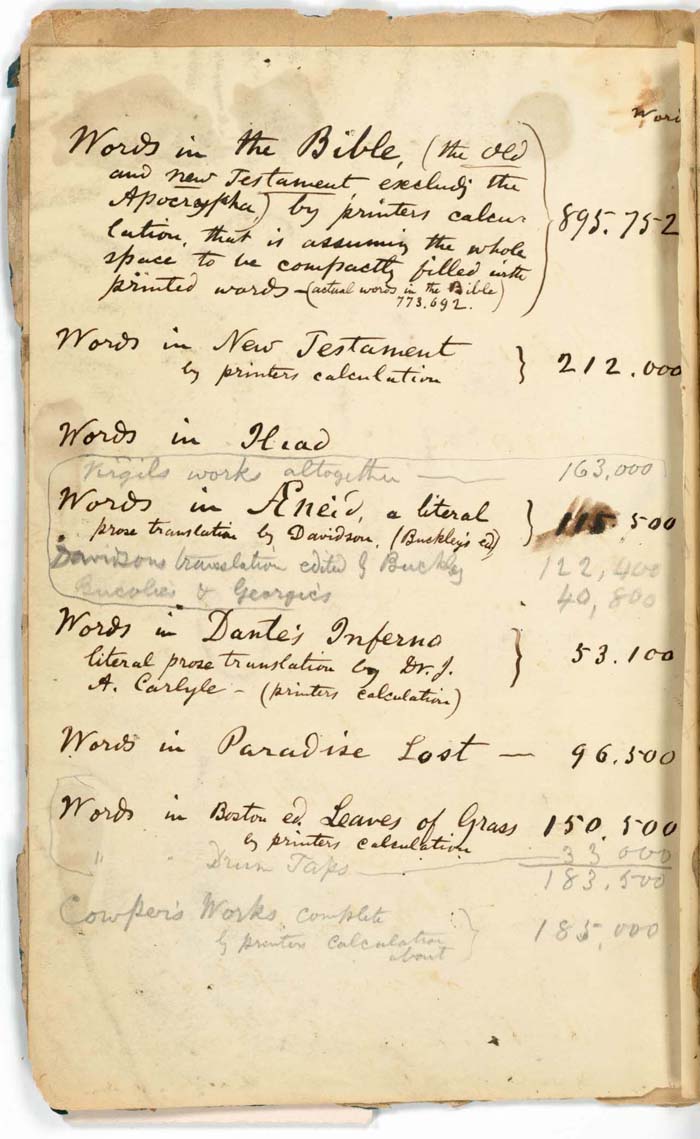 Wor
Words in the Bible, (the Old
and new Testament, excludg the
Apocrypha,) by printers calcu-
lation, that is assuming the whole
space to be compactly filled with
printed words – (actual words in the Bible)
773,692.
895.752
Words in New Testament
by printers calculation } 212.000
Words in Iliad
Virgils works altogether — 163,000
Words in Æneid, a literal
prose translation by Davidson, (Buckley's ed) } 115,500
Davidsons translation edited by Buckley 122,400
Bucolics & Georgics 40,800
Words in Dante's Inferno
literal prose translation by Dr. J.
A. Carlyle – (printers calculation) } 53.100
Words in Paradise Lost — 96.500
Words in Boston ed. Leaves of Grass 150,500
by printers calculation
" Drum Taps — 33 000
183,500
Cowper's Works complete
by printers calculation
about } 185,000